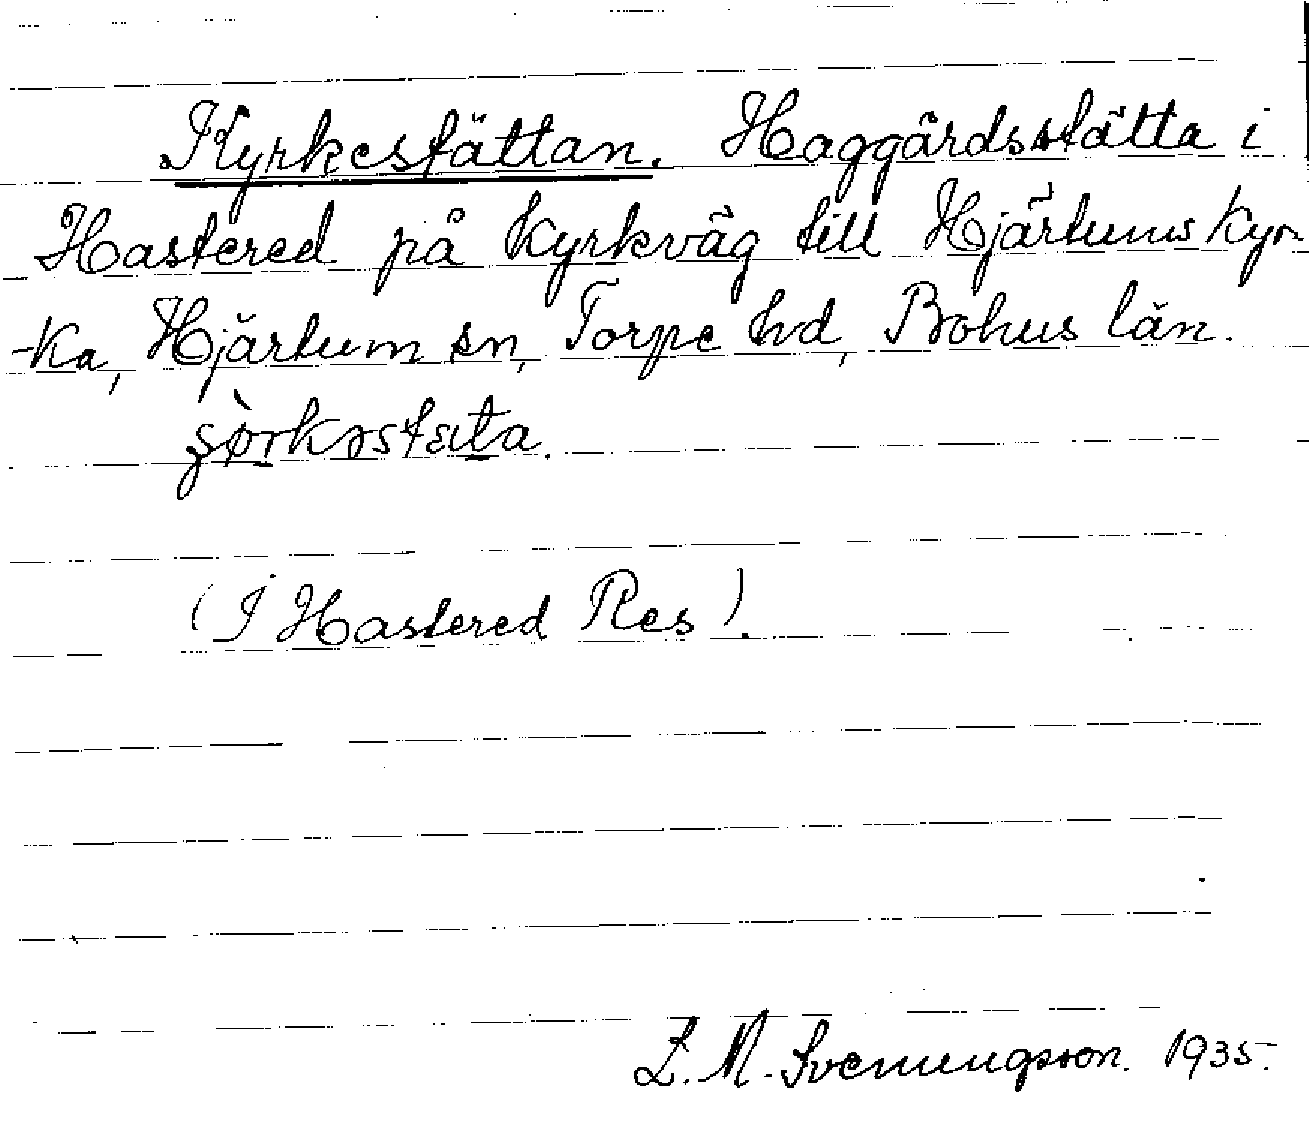 Kyrkestättan. Haggårdsstätta i
Hastered på Kyrkväg till Hjärtums Kyr-
-Ka, Hjärtum sn, Torpe hd, Bohus län.
(I Hastered Res).
L. M. Svenungsson. 1935.